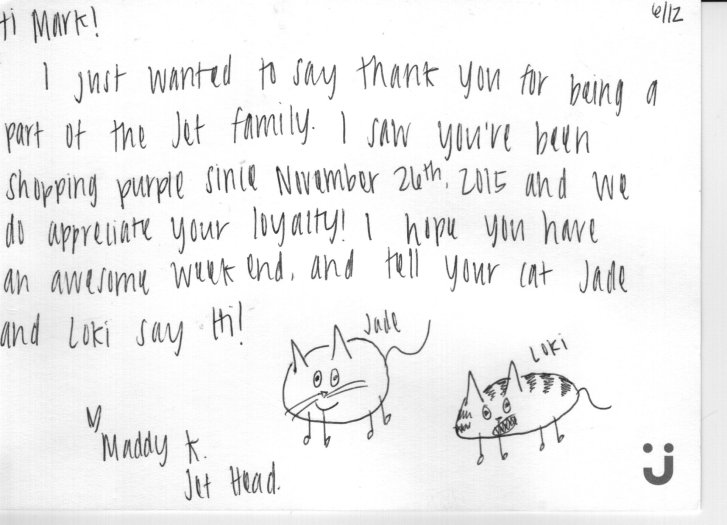 6/12
Hi Mark!
I just wanted to say thank you for being a
part of the Jet family. I saw you've been
shopping purple since November 26th, 2015 and we
do appreciate your loyalty! I hope you have
an awesome week end, and tell your cat Jade
and Loki say Hi!
Jade
Loki
Maddy K.
Jet Head.